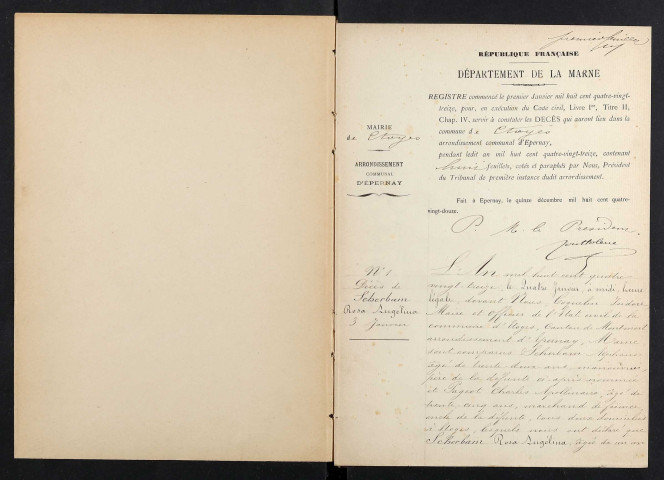 premier feuillet
RÉPUBLIQUE FRANÇAISE
DÉPARTEMENT DE LA MARNE
REGISTRE commencé le premier Janvier mil huit cent quatre-vingt-
treize, pour, en exécution du Code civil, Livre Ier, Titre II,
Chap. IV, servir à constater les DÉCÈS qui auront lieu dans la
commune de Etoges
arrondissement communal d'Epernay,
pendant ledit an mil huit cent quatre-vingt-treize, contenant
huit feuillets, cotés et paraphés par Nous, Président
du Tribunal de première instance dudit arrondissement.
Fait à Epernay, le quinze décembre mil huit cent quatre-
vingt-douze.
P. M. le Président
MAIRIE
de Etoges
ARRONDISSEMENT
COMMUNAL
D'EPERNAY
N° 1
Décès de
Scherbam
Rosa Angélina
3 Janvier
L'An mil huit cent quatre
vingt treize, le quatre Janvier, à midi, heure
légale, devant Nous, Coquelin Isidore
Maire et officier de l'état civil de la
commune d'Etoges, Canton de Montmort
arrondissement d'Epernay, Marne
sont comparus Scherbam Alphonse
âgé de trente deux ans, manouvrier,
père de la défunte ci-après nommée
et Pageot Charles Apollinaire, âgé de
trente cinq ans, marchand de
oncle de la défunte, tous deux domiciliés
à Etoges, lesquels nous ont déclaré que
Scherbam Rosa Angélina, âgée de un an